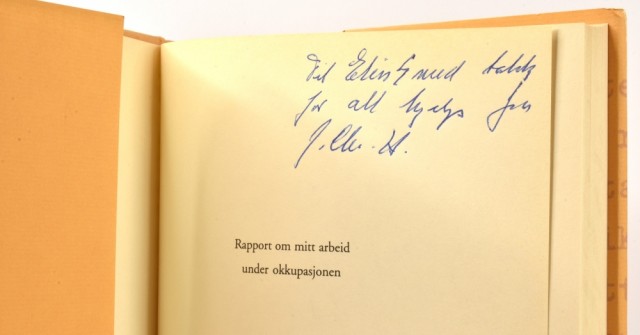 Til Elin med takk
for all hjelp fra
J. Chr. H.
Rapport om mitt arbeid
under okkupasjonen